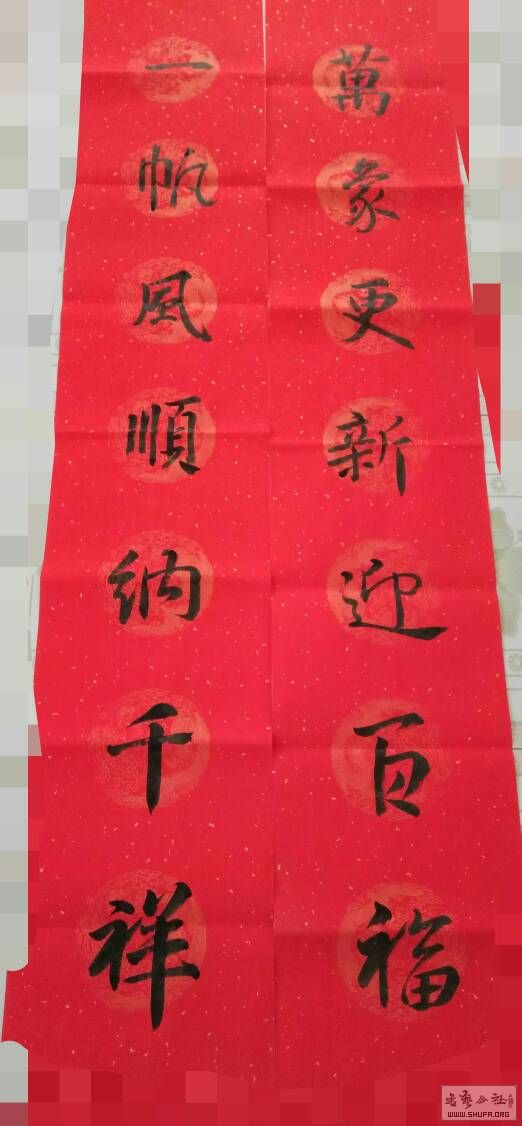 萬象更新迎百福
一帆風順納千祥
WWW.SHUFA.ORG